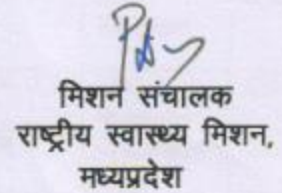 मिशन संचालक
राष्ट्रीय स्वास्थ्य मिशन,
मध्यप्रदेश